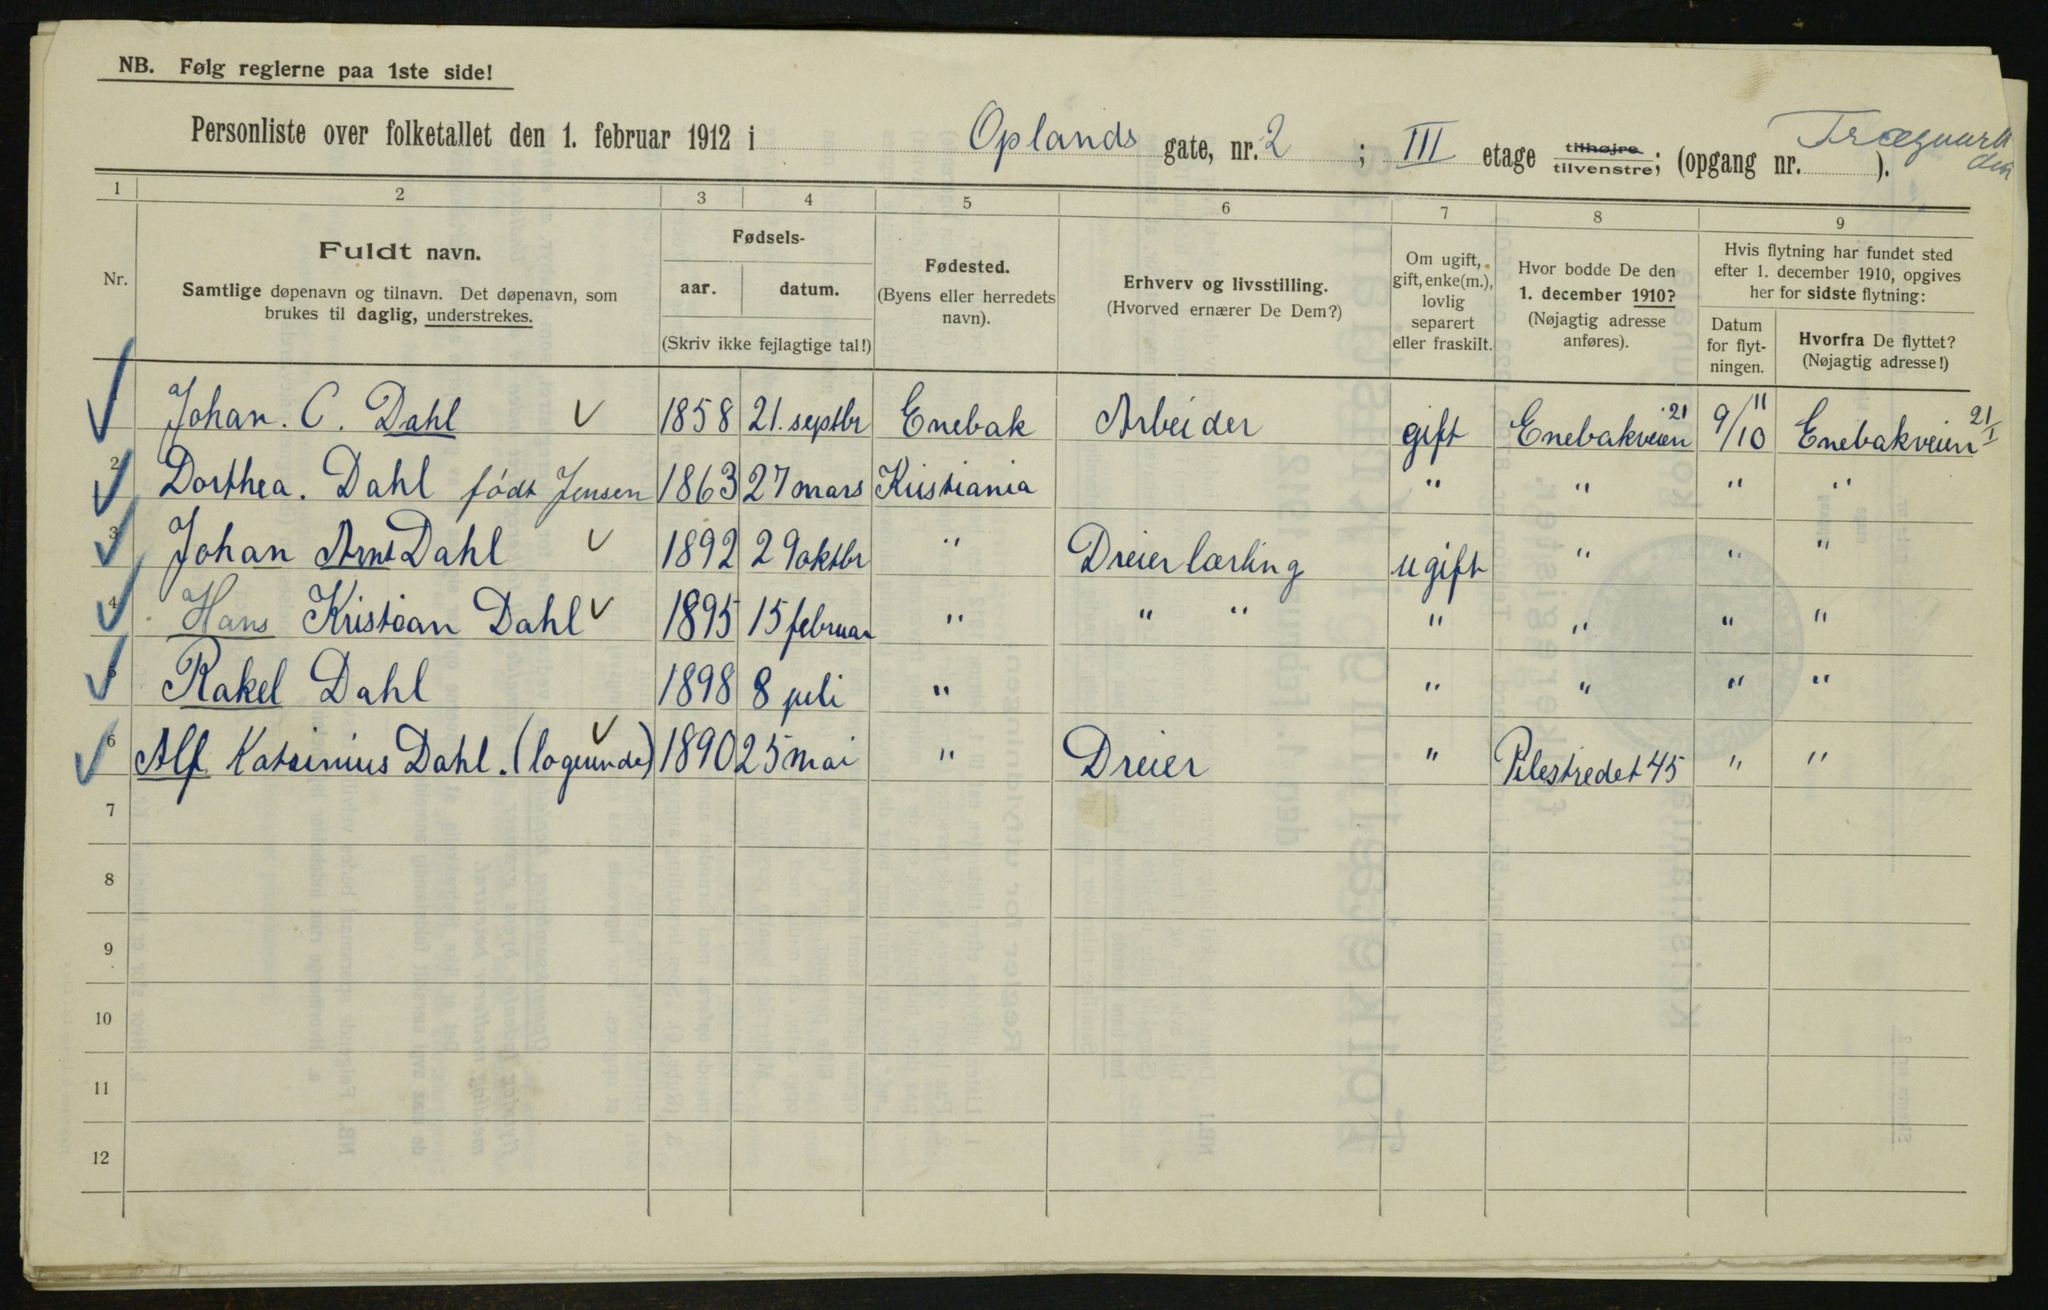 NB. Følg reglerne paa 1ste side!
Personliste over folketallet den 1. februar 1912 i Oplands gate, nr. 2 ; III etage tilhøjre tilvenstre; (opgang nr. ).
1 2 3 4 5 6 7 8 9
Nr.
Fuldt navn.
Samtlige døpenavn og tilnavn. Det døpenavn, som
brukes til daglig, understrekes.
Fødsels-
aar. datum.
(Skriv ikke fejlagtige tal!)
Fødested.
(Byens eller herredets
navn).
Erhverv og livsstilling.
(Hvorved ernærer De Dem?)
Om ugift,
gift, enke(m.),
lovlig
separert
eller fraskilt.
Hvor bodde De den
1. december 1910?
(Nøjagtig adresse
anføres).
Hvis flytning har fundet sted
efter 1. december 1910, opgives
her for sidste flytning:
Datum
for flyt-
ningen.
Hvorfra De flyttet?
(Nøjagtig adresse!)
Johan. C. Dahl 1858 21. septbr Enebak Arbeider gift Enebakveien 21 9/10 11 Enebakveien 21/1
2 Dorthea. Dahl født Jensen 1863 27 mars Kristiania " " " "
3 Johan Arnt Dahl 1892 29 oktbr " Dreier lærling ugift " " "
4 Hans Kristian Dahl 1895 15 februar " " " " " " "
5 Rakel Dahl 1898 8 juli " " " " "
6 Alf Katrinius Dahl. (logerende) 1890 25 mai " Dreier " Pilestredet 45 " "
7
8
9
10
11
12